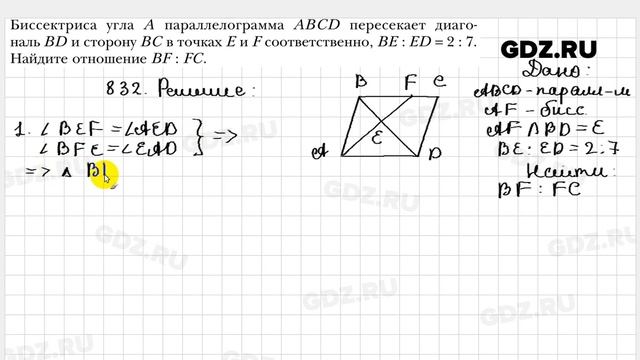 Биссектриса угла A параллелограмма ABCD пересекает диаго-
наль BD и сторону BC в точках E и F соответственно, BE : ED = 2 : 7.
Найдите отношение BF : FC.
GDZ.RU
832. Решение:
1. ∠BEF = ∠AED
∠BFE = ∠EAD
} =>
=> △ B
B F C
E
A D
Дано:
ABCD - паралл-м
AF - бисс.
AF ∩ BD = E
BE : ED = 2:7
Найти:
BF : FC
GDZ.RU
GDZ.RU
GDZ.RU
GDZ.RU
GDZ.RU